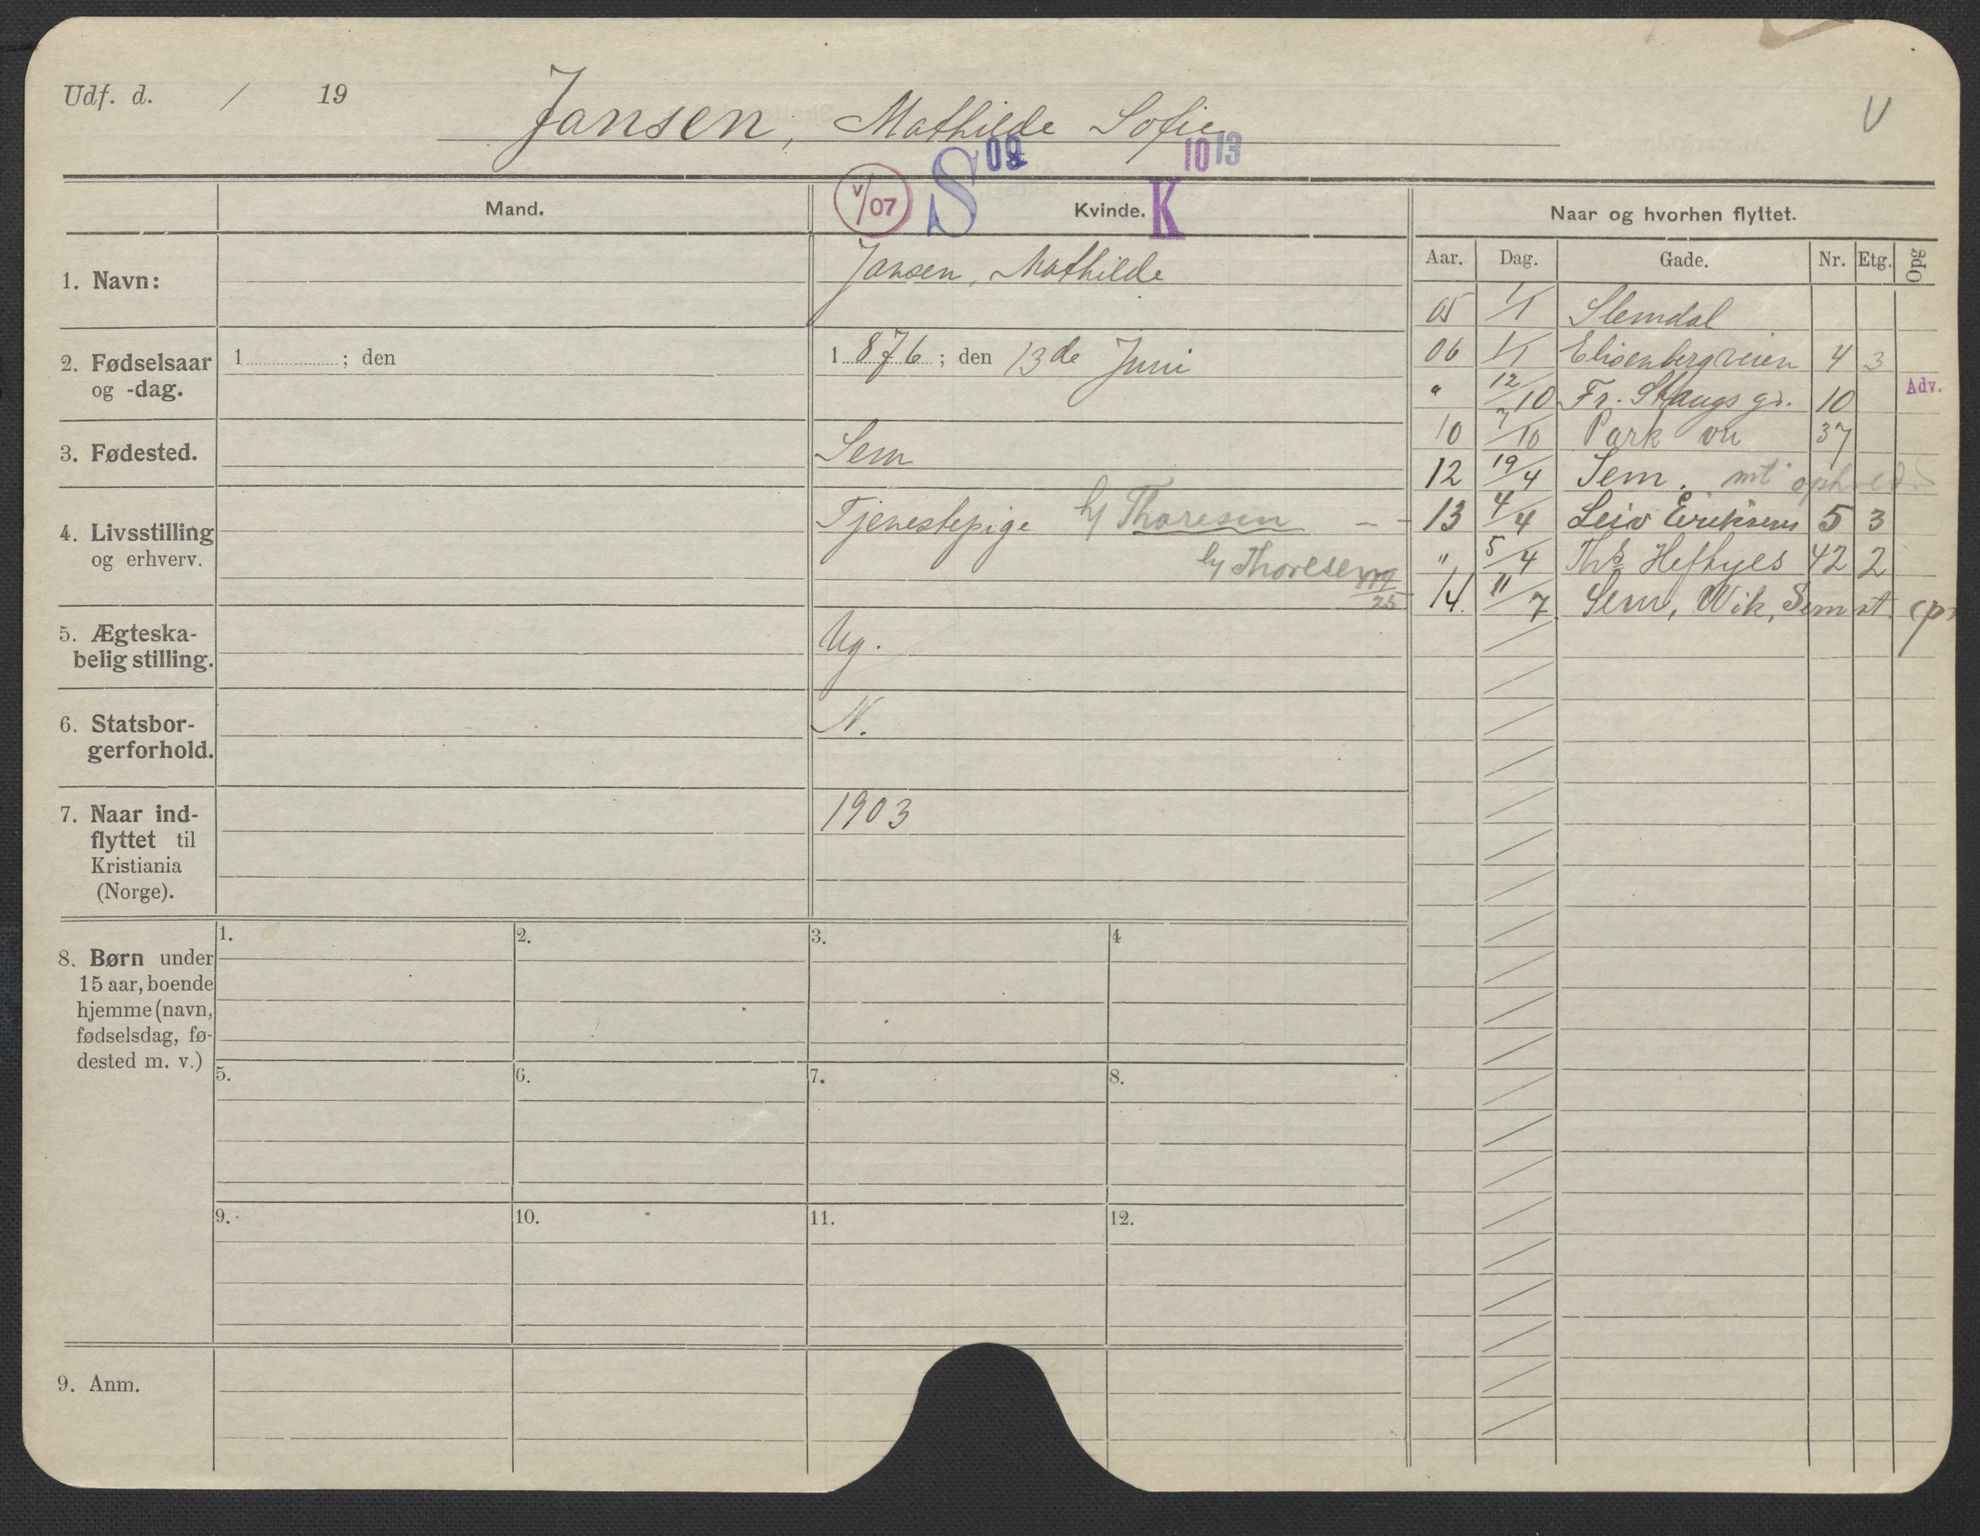 Udf. d. / 19
Jansen, Mathilde Sofie
V
V/07 S 08 K 10 13
Mand.
Kvinde.
Naar og hvorhen flyttet.
Aar. Dag. Gade. Nr. Etg. Opg
1. Navn:
Jansen, Mathilde
2. Fødselsaar
og -dag.
1 ; den
1 876 ; den 13de Juni
3. Fødested.
Sem
4. Livsstilling
og erhverv.
Tjenestepige h/ Thoresen - -
h/ Thoresen
5. Ægteska-
belig stilling.
Ug.
6. Statsbor-
gerforhold.
N.
7. Naar ind-
flyttet til
Kristiania
(Norge).
1903
05 1/1 Slemdal
06 1/1 Elisenbergveien 4 3
" 12/10 Fr. Stangs gd. 10 Adv.
10 7/10 Park vn 37
12 19/4 Sem. mt ophold
13 4/4 Leiv Eiriksens 5 3
" 5/4 Ths Heftyes 42 2
14. 11/7 Sem, Wik, Sem st.
8. Børn under
15 aar, boende
hjemme (navn,
fødselsdag, fø-
dested m. v.)
1. 2. 3. 4
5. 6. 7. 8.
9. 10. 11. 12.
9. Anm.